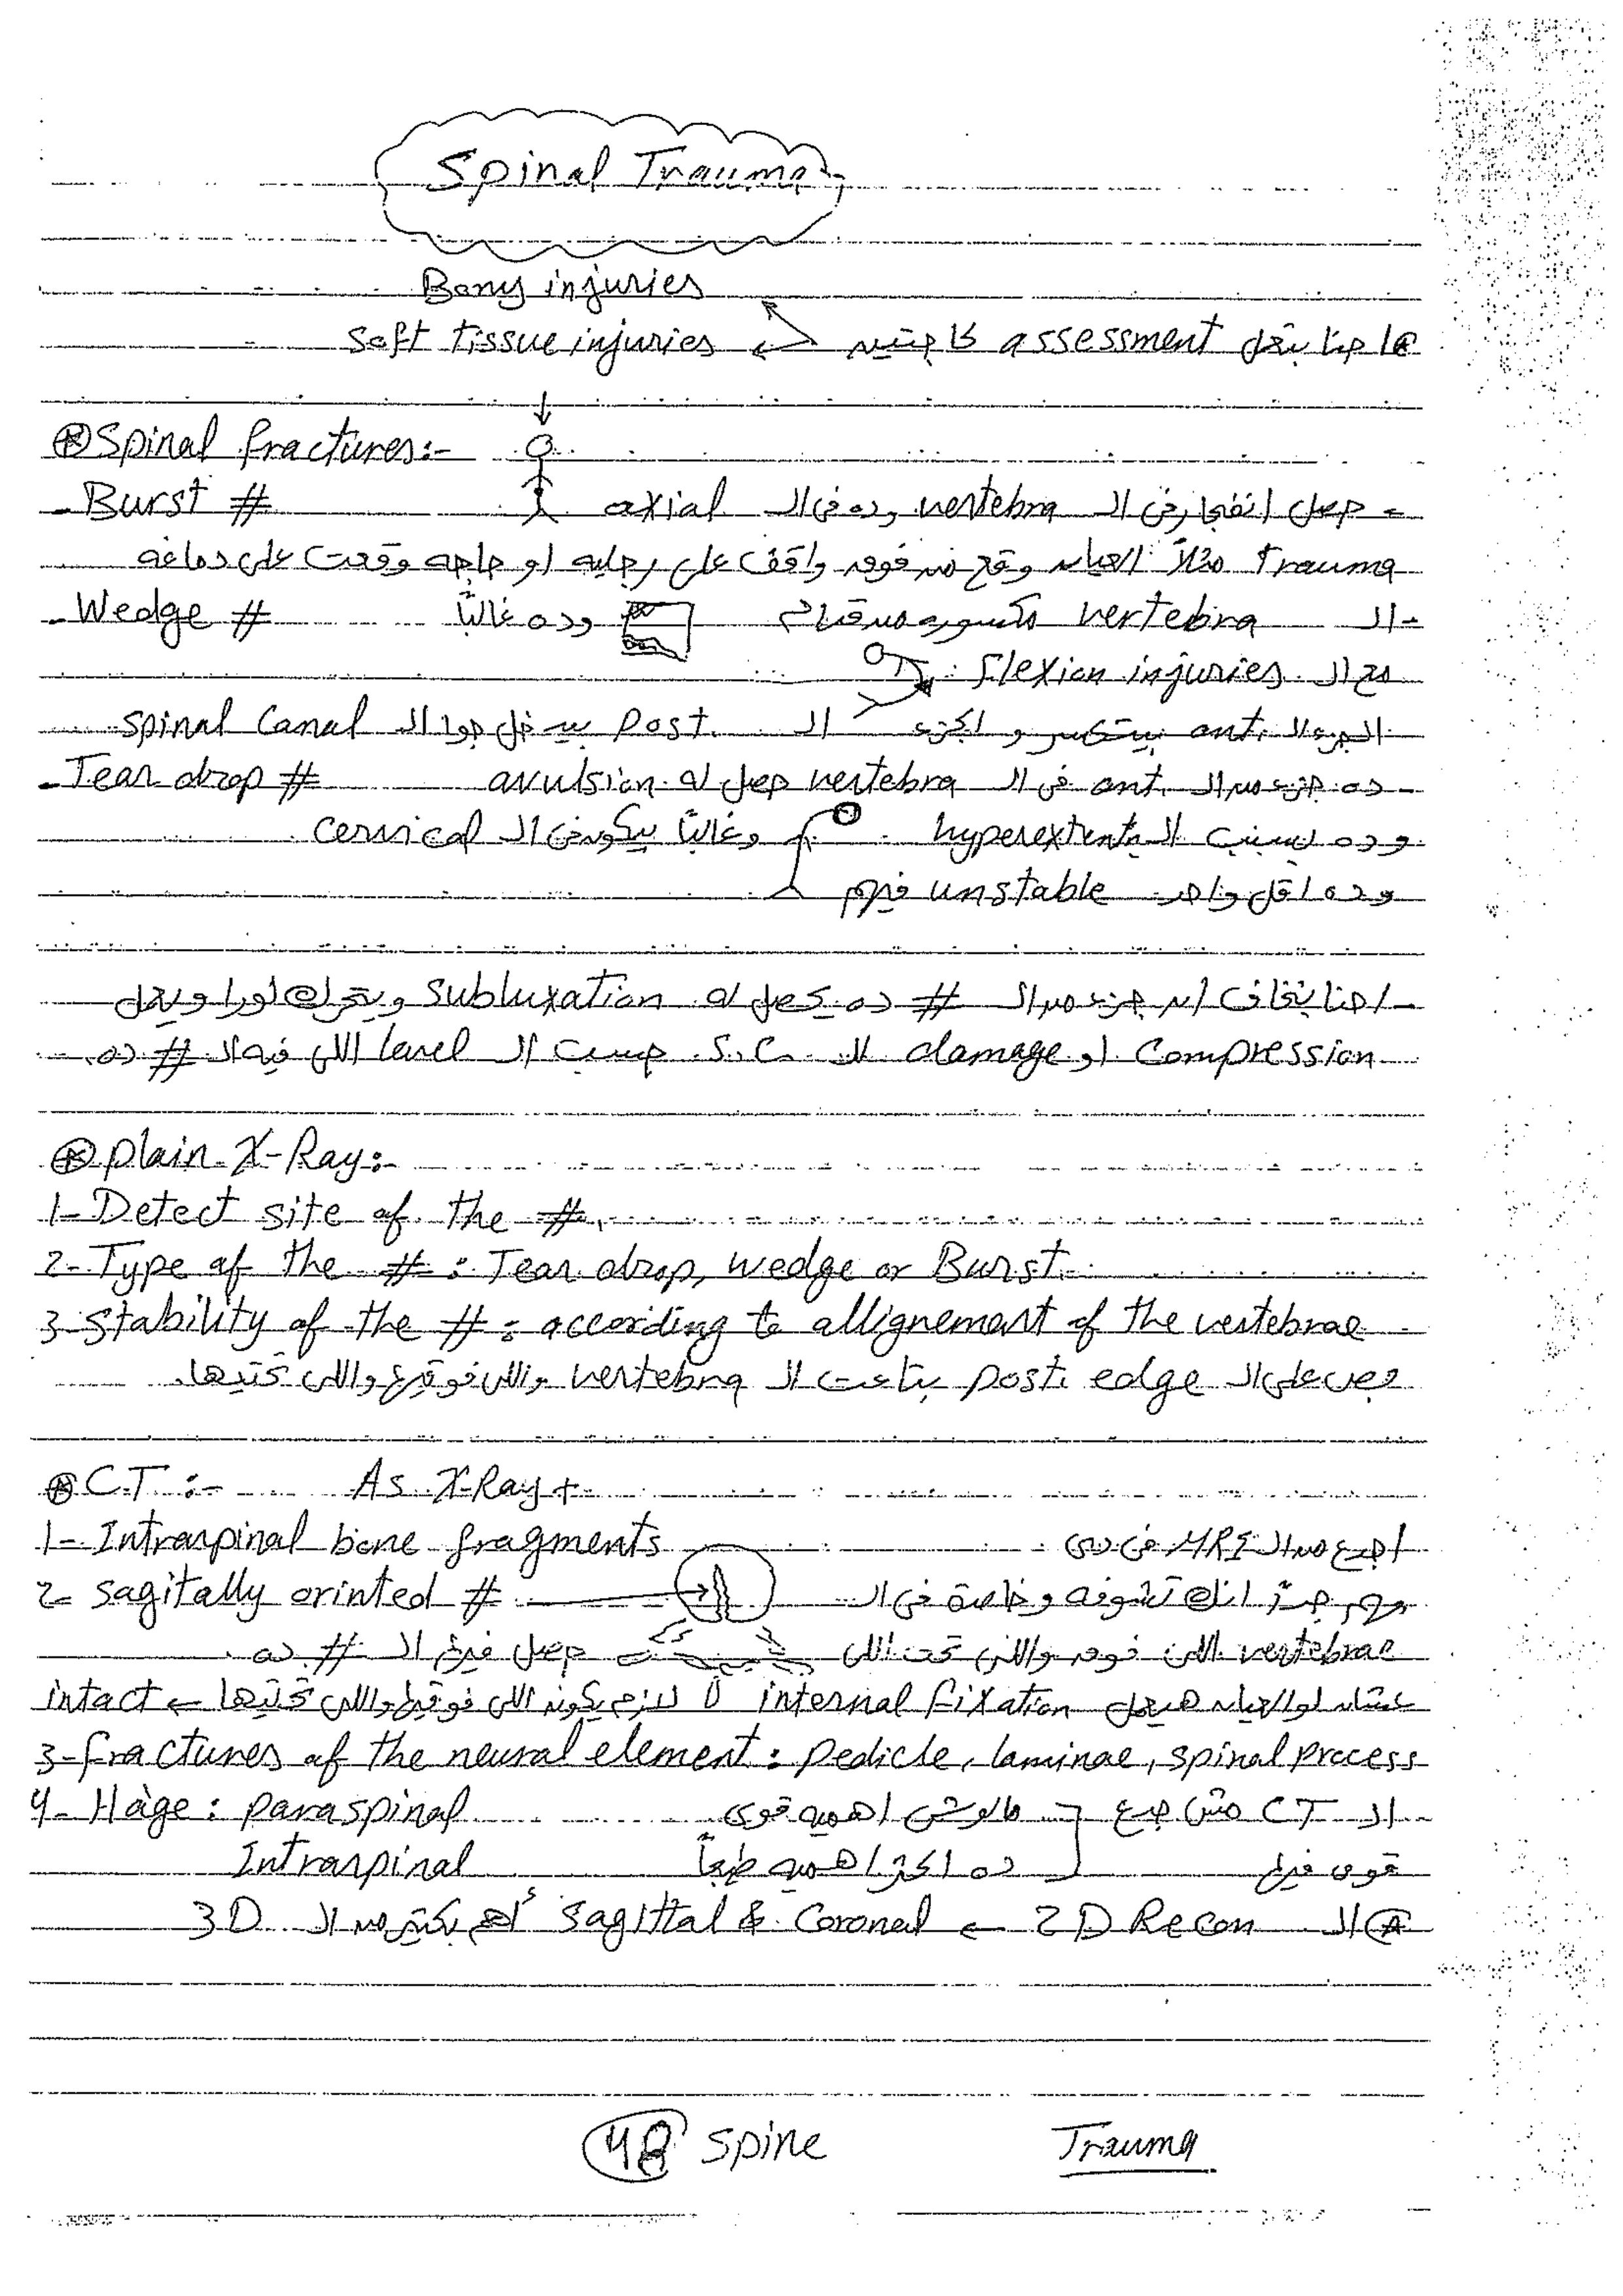 Spinal Trauma
Bony injuries
احنا بنعمل assessment لحاجتين soft tissue injuries
Spinal fractures:-
- Burst # حصل انفجار في الـ vertebra وده في الـ axial
Trauma مثلاً العيان وقع من فوق واقف على رجليه او حاجه وقعت على دماغه
- Wedge # - الـ vertebra مكسوره من قدام وده غالباً
مع الـ flexion injuries
الجزء الـ ant. بيتكسر و الجزء الـ post. بيدخل جوا الـ spinal Canal
- Tear drop # - ده جزء من الـ ant. في الـ vertebra حصل له avulsion
وده بسبب الـ hyperextent وغالباً بيكون في الـ cervical
وده اقل واحد unstable فيهم
- احنا بنخاف ان جزء من الـ # ده يحصل له subluxation ويتحرك لورا ويعمل
Compression او damage للـ S.C. حسب الـ level اللي فيه الـ # ده.
plain X-Ray:-
1- Detect site of the #.
2- Type of the # : Tear drop, wedge or Burst.
3- Stability of the # : according to allignement of the vertebrae
بص على الـ post. edge بتاعت الـ vertebra واللي فوقيها واللي تحتيها.
C.T :- As X-Ray +
1- Intraspinal bone fragments اجدع من الـ MRI في دي
2- sagitally orinted # مهم جداً انك تشوفه وخاصة في الـ
vertebrae اللي فوق واللي تحت اللي حصل فيها الـ # ده.
عشان لو العيان هيعمل internal fixation لازم يكون اللي فوقيها واللي تحتيها ← intact
3- fractures of the neural element : pedicle, laminae, spinal process
4- Hage : paraspinal مالوش اهميه قوى الـ CT مش جدع
Intraspinal ده اكتر اهميه طبعاً قوى فيها
الـ 2D Recon ← Sagittal & Coronal أهم بكتير من الـ 3D
48 spine Trauma